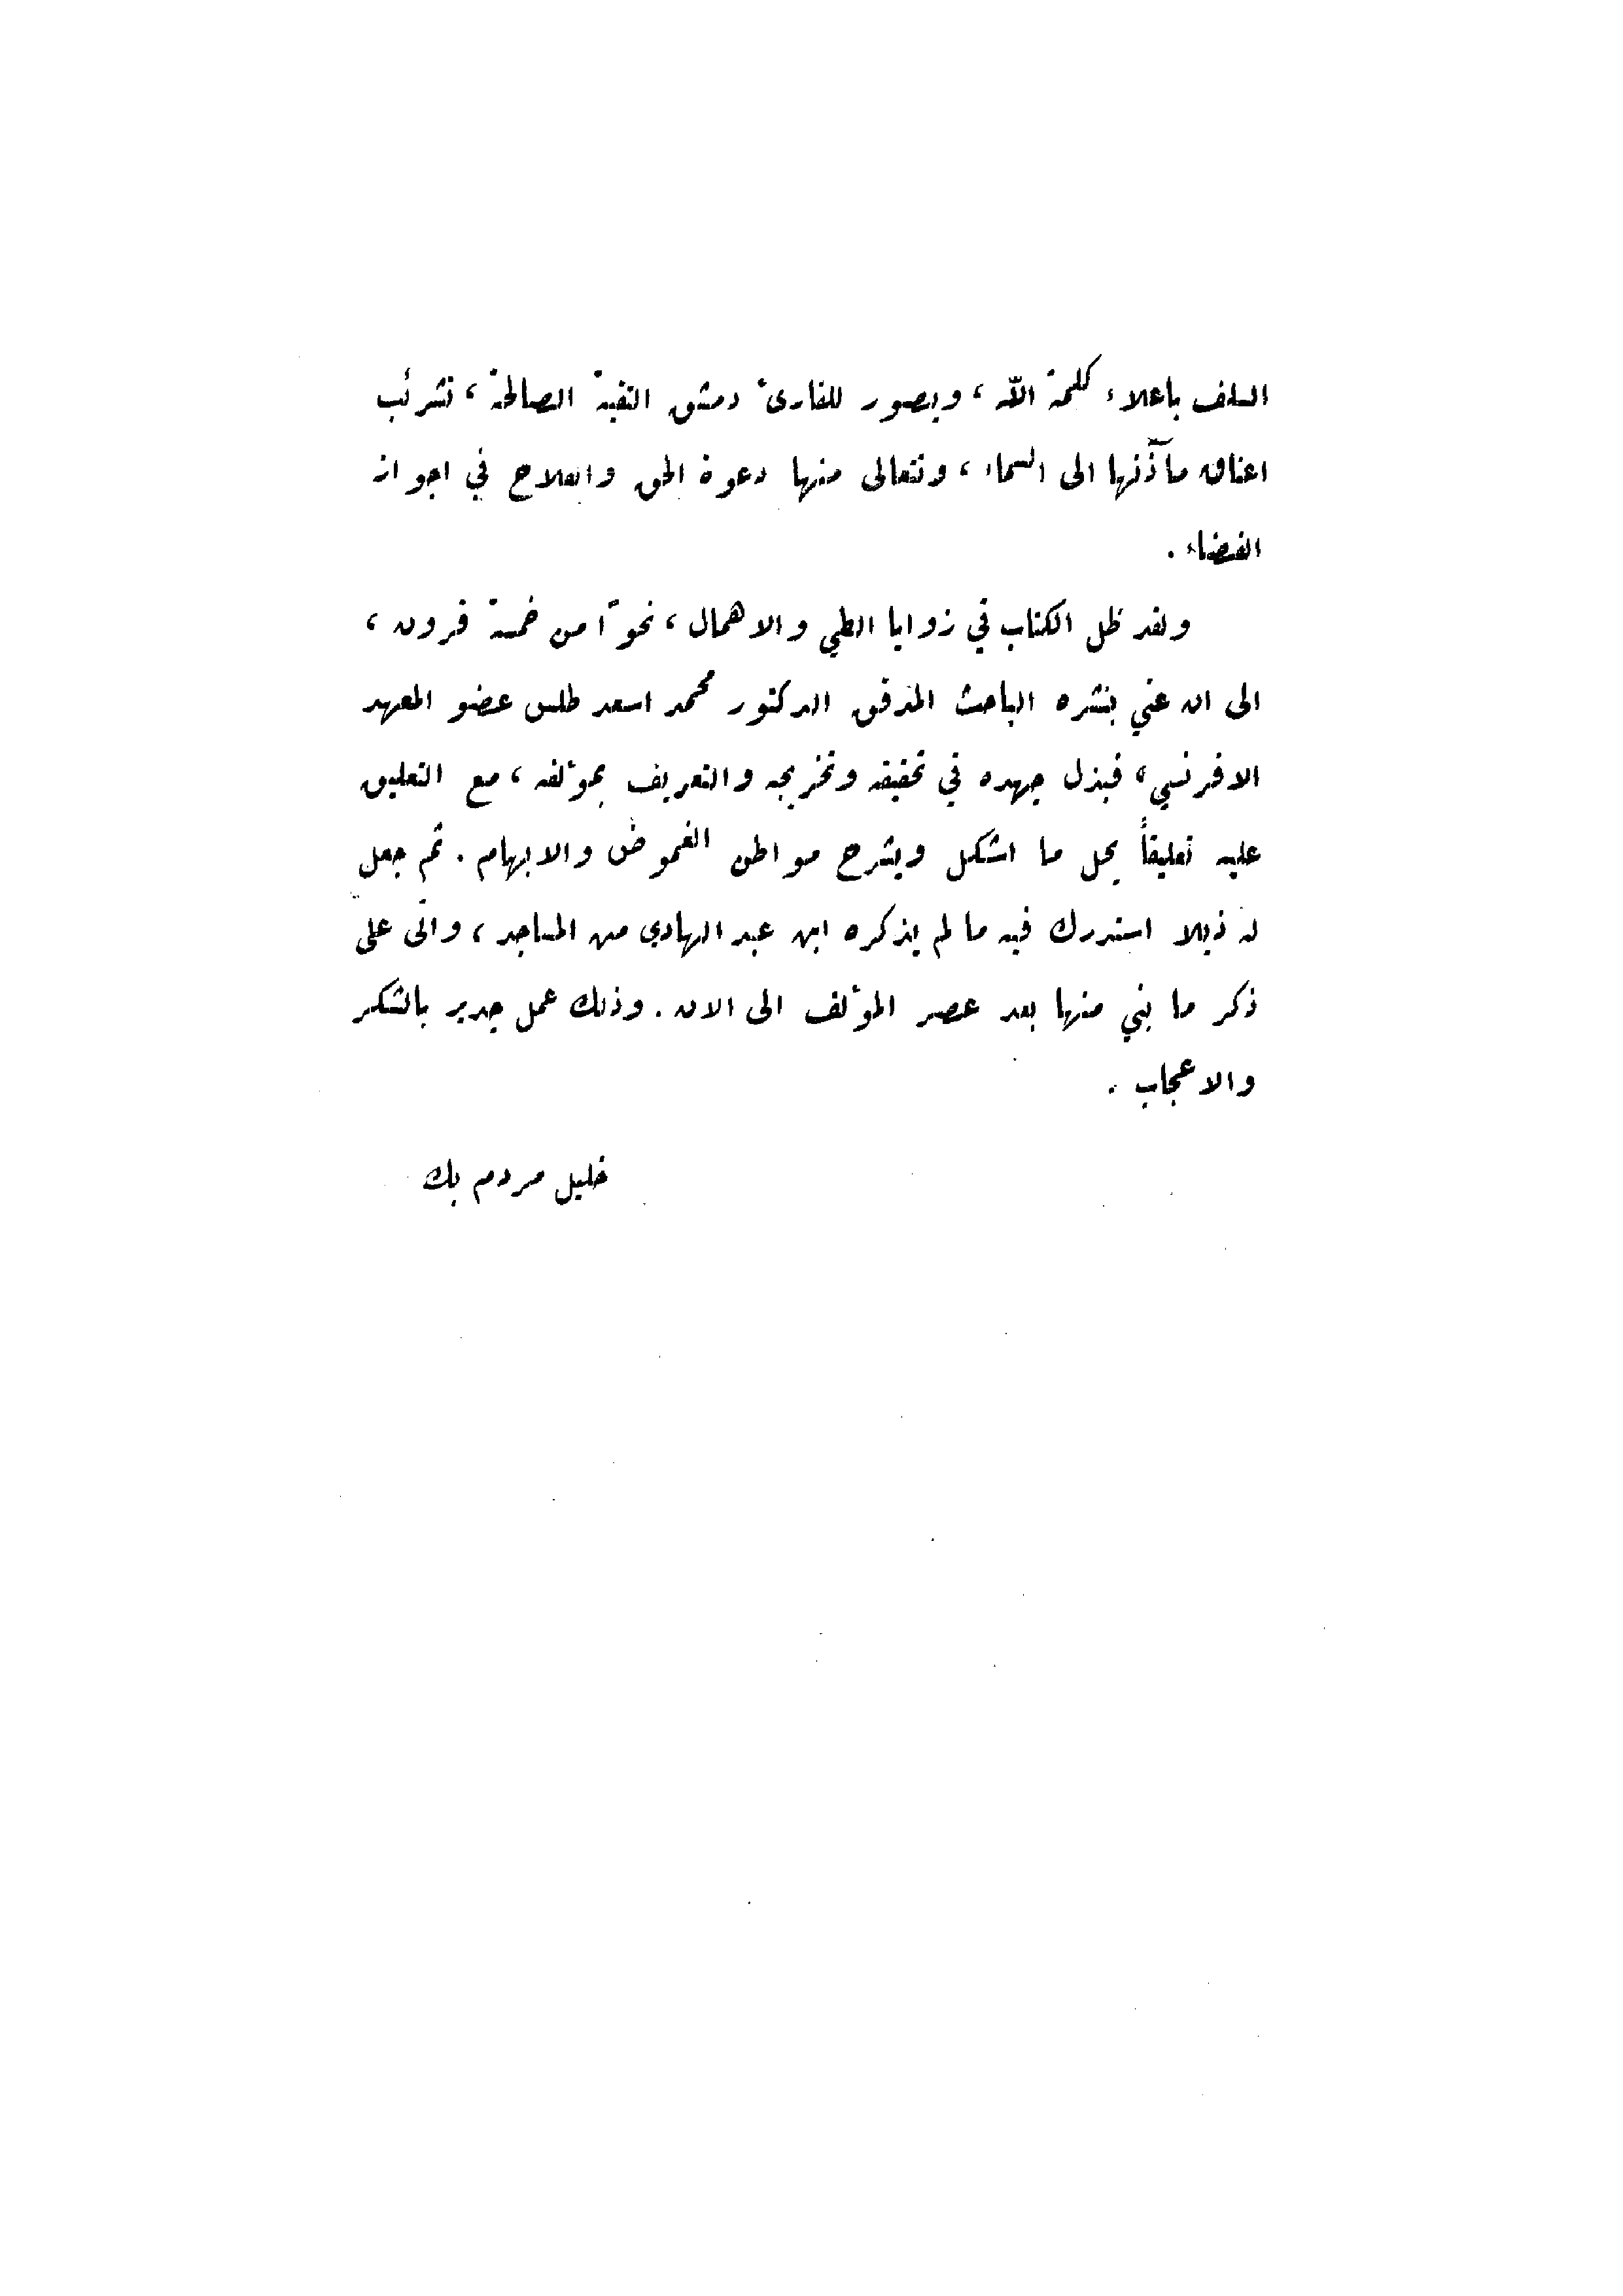 السلف باعلاء كلمة الله ، ويصور للقارئ دمشق التقية الصالحة ، تشرئب
اعناق مآذنها الى السماء ، وتتعالى منها دعوة الحق والفلاح في اجواز
الفضاء .
ولقد ظل الكتاب في زوايا الطي والاهمال ، نحوًا من خمسة قرون ،
الى ان عني بنشره الباحث المدقق الدكتور محمد اسعد طلس عضو المعهد
الافرنسي ، فبذل جهده في تحقيقه وتخريجه والتعريف بمؤلفه ، مع التعليق
عليه تعليقاً يحل ما اشكل ويشرح مواطن الغموض والابهام . ثم جعل
له ذيلا استدرك فيه ما لم يذكره ابن عبد الهادي من المساجد ، واتى على
ذكر ما بني منها بعد عصر المؤلف الى الان . وذلك عمل جدير بالشكر
والاعجاب .
خليل مردم بك